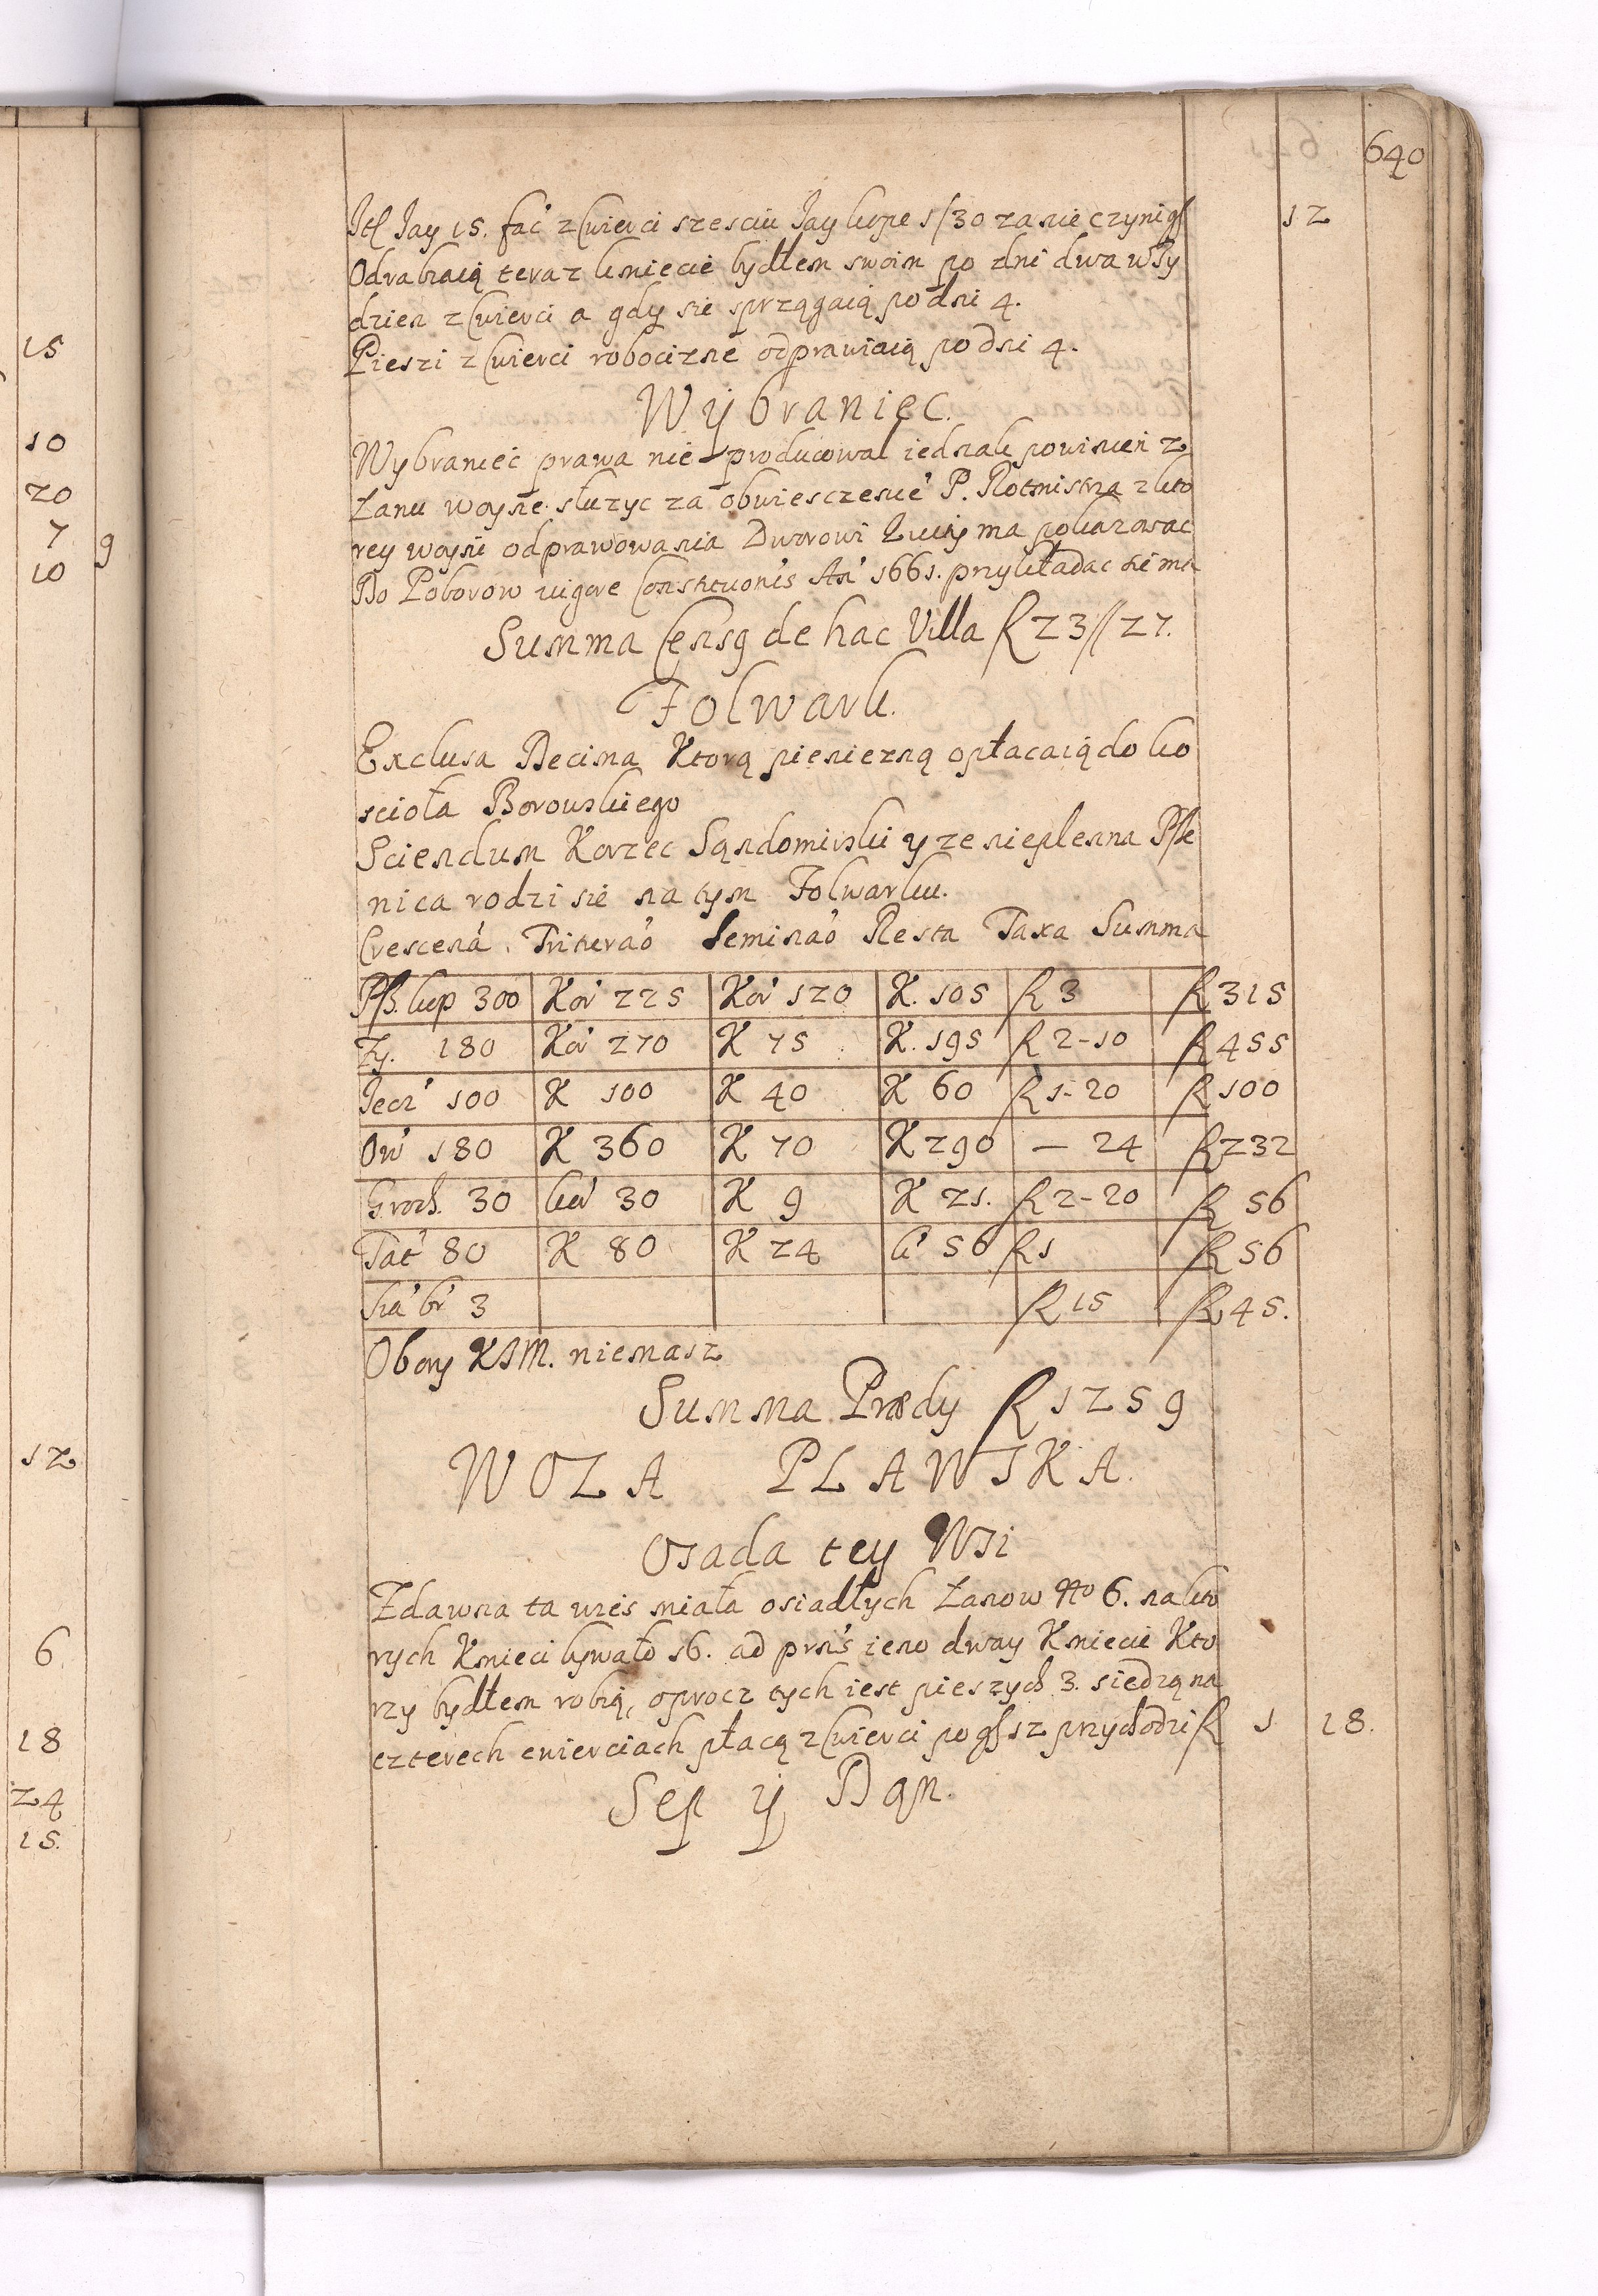 640
Itē Jay 15. fać z Cwierci szesciu Jay kope 1/30 za nie czynią gſ 12
Odrabiaią teraz kmiecie bydłem swoim po dni dwa w Ty
dzien z Cwierci a gdy sie sprzągaią po dni 4.
Pieszi z Cwierci robocizne odprawiaią po dni 4.
Wybraniec.
Wybraniec prawa nie producował iednak powinien z
Łanu woyne służyc za obwiesczenie P. Rotmistrza z kto
rey woyny odprawowania Dworowi kwity ma pokazowac
Do Poborow vigore Constituonis An 1661. przykładac sie ma
Summa Censg de hac Villa R 23 // 27.
Folwark.
Exclusa Decima Ktorą pieniezną opłacaią do ko
scioła Borowskiego
Sciendum Korzec Sąndomirski y ze nieplenna Psze
nica rodzi sie na tym Folwarku.
Crescená Triturao Seminao Resta Taxa Summa
Pſz. kop 300 Kor 225 Kor 120 K. 105 R 3 R 315
Zy. 180 Kor 270 K 75 K. 195 R 2-10 R 455
Jecz 100 K 100 K 40 K 60 R 1-20 R 100
Ow 180 K 360 K 70 K 290 — 24 R 232
Groch. 30 kor 30 K 9 K 21. R 2-20 R 56
Tat 80 K 80 K 24 k 56 R 1 R 56
Siá br 3 R 15 R 45.
Obory KJM. niemasz
Summa Prædy R 1259
WOLA PLAWSKA.
Osada tey Wsi
Zdawna ta wies miała osiadłych Łanow No 6. na kto
rych Kmieci bywało 16. ad prns ieno dway Kmiecie Kto
rzy bydłem robią, oprocz tych iest pieszych 3. siedzą na
czterech cwierciach płacą z Cwierci po gſ 12 przychodzi R 1 18.
Sep y Dań.
15
10
20
7 9
10
12
6
18
24
15.